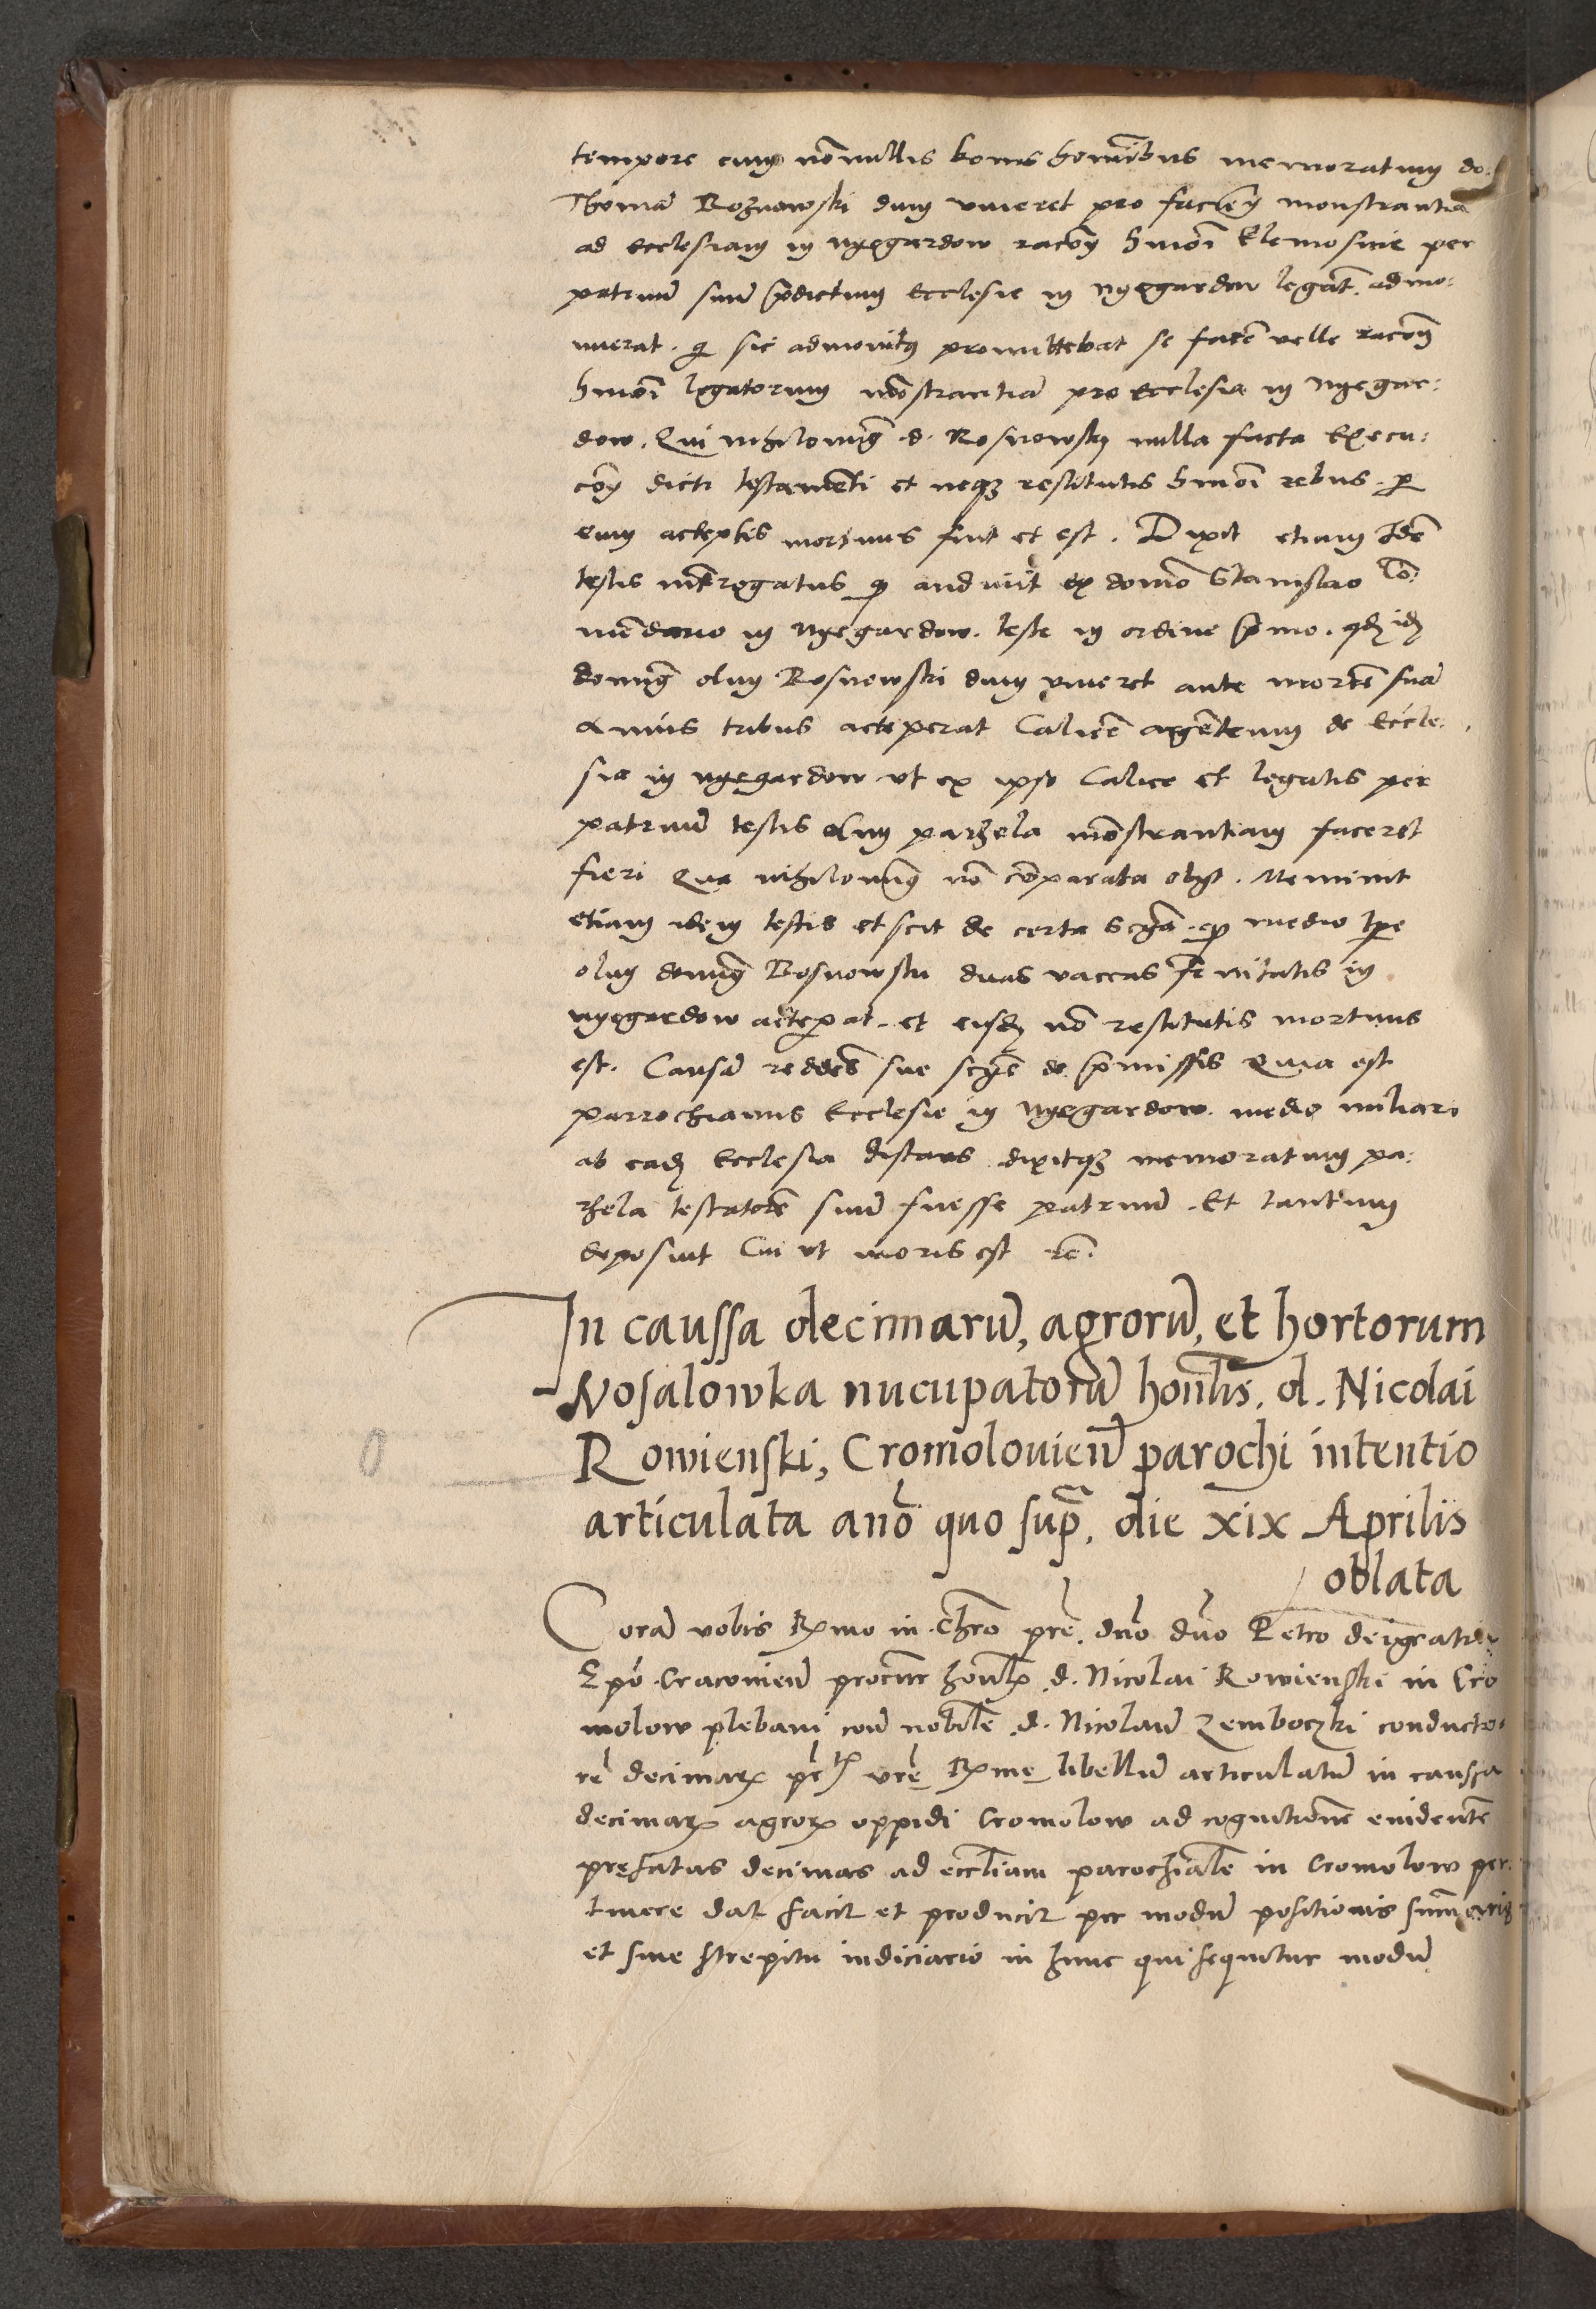 tempore cum nōnullis bonis hominibus memoratum do:
Thomā Roznowski dum viueret pro faciēn monstrantia
ad ecclesiam in nyegardow racōn hmōi Elemosine per
patruū suū p̄dictum ecclesie in nyegardow legāt. admo:
nuerat. qui sic admonitus promittebat se facē velle racōn
hmōi legatorum mōstrantiā pro ecclesia in nyegar:
dow. Qui nihilominus d. Rosnowsky nulla facta Execu:
cōn dicti testamēti et neqz restitutis hmōi rebus. per
eum acceptis mortuus fuit et est. Dixit etiam Idē
testis intērogatus q audiuit ex domō Stanislao Cō:
mēdario in nyegardow. teste in ordine p̄mo. qd id
dominus olim Rosnowski dum viueret ante mortē suā
annis tribus acceperat Calicē argēteum de eccle:
sia in nyegardow vt ex ipso Calice et legatis per
patruū testis olim parzela mōstrantiam faceret
fieri Que nihilominus nō cōparata obyt. Meminit
etiam idem testis et scit de certa scīa. q medio tp̄e
olim dominus Rosnowski duas vaccas in
nyegardow acceperat. et eisd nō restitutis mortuus
est. Causā reddēs sue scīe de p̄missis Quia est
parrochianus Ecclesie in nyegardow. medio miliari
ab ead Ecclesia distans dixitqz memoratum pa:
rzela testatorē suū fuesse patruū. Et tantum
deposuit Cui vt moris est rē.
In caussa decimarū, agrorū, et hortorum
Nosalowka nucupatorū honlis. d. Nicolai
Rowienski, Cromolouień parochi intentio
articulata anō quo sup̄, die xix Aprilis
oblata
Corā vobis Rmo in Chrō prē. dnō dnō Petro dei gratia
Epō Cracouień procur honlis d. Nicolai Rowienski in Cro
molow plebani cōn nobilē d. Nicolaū Zemboczki conducto
rē decimar prtis vrē Rme libellū articulatū in caussa
decimar agror oppidi Cromolow ad cognitionē euidentē
prefatas decimas ad ecclīam parochialē in Cromolow per
tinere dat facit et producit per modū positionis sum̄arie
et sine strepitu iudiciario in hunc qui sequitur modū